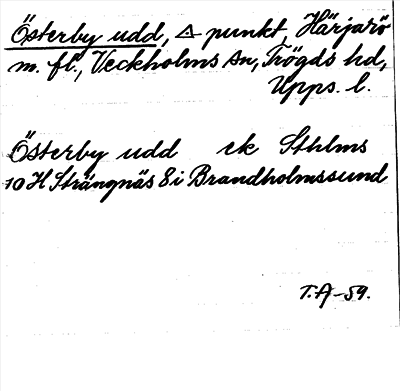 Österby udd, △ punkt, Härjarö
m. fl., Veckholms sn, Trögds hd,
Upps. l.
Österby udd ek Sthlms
10 H Strängnäs 8i Brandholmssund
T.A-59.